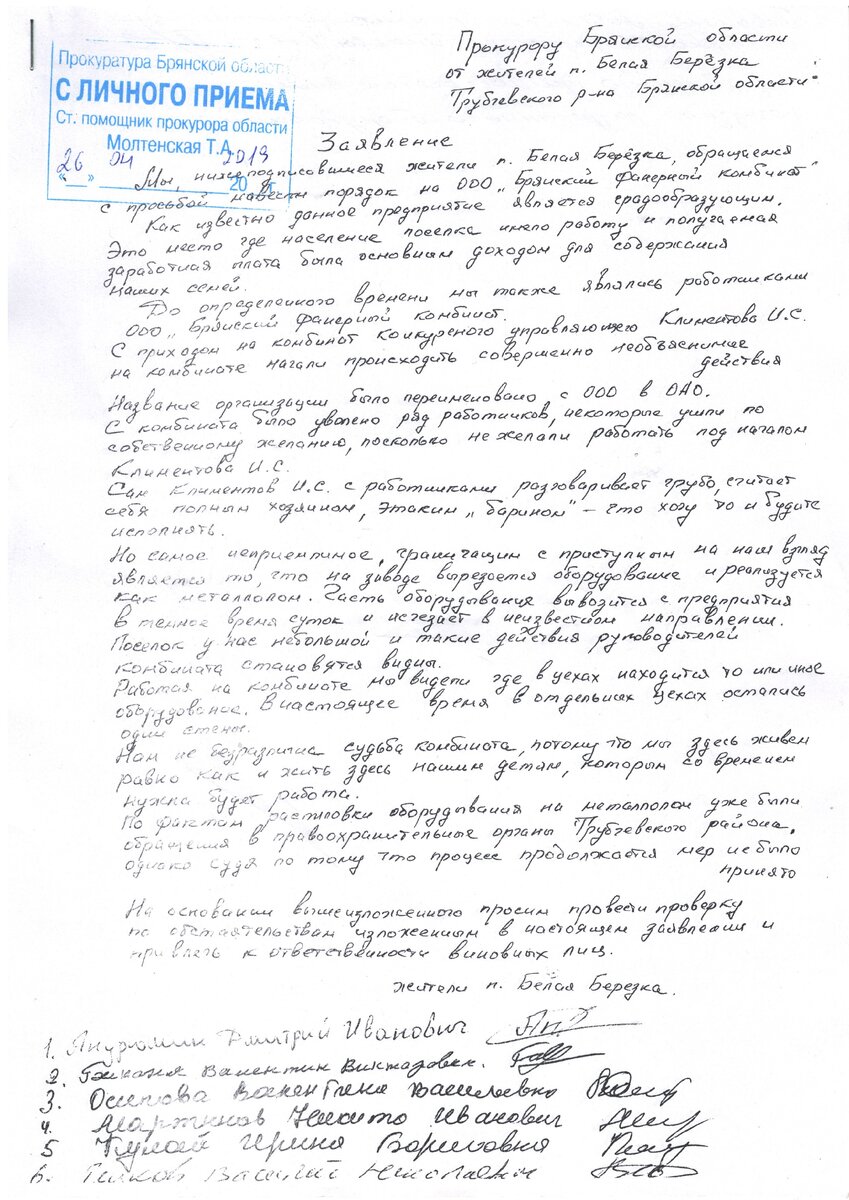 Прокуратура Брянской области
С ЛИЧНОГО ПРИЕМА
Ст. помощник прокурора области
Молтенская Т.А.
«26» 04 2019 г.
Прокурору Брянской области
от жителей п. Белая Берёзка
Трубчевского р-на Брянской области.
Заявление
Мы, нижеподписавшиеся жители п. Белая Берёзка, обращаемся
с просьбой навести порядок на ООО „Брянский Фанерный комбинат"
Как известно данное предприятие является градообразующим.
Это место где население поселка имело работу и получаемая
заработная плата была основным доходом для содержания
наших семей.
До определенного времени мы также являлись работниками
ООО „Брянский Фанерный комбинат.
С приходом на комбинат конкурсного управляющего Климентова И.С.
на комбинате начали происходить совершенно необъяснимые
действия
Название организации было переименовано с ООО в ОАО.
С комбината было уволено ряд работников, некоторые ушли по
собственному желанию, посколько не желали работать под началом
Климентова И.С.
Сам Климентов И.С. с работниками разговаривает грубо, считает
себя полным хозяином, этаким „барином" – что хочу то и будите
исполнять.
Но самое неприемтиное, граничащим с приступным на наш взгляд
является то, что на заводе вырезается оборудование и реализуется
как металлолом. Часть оборудывания вывозится с предприятия
в темное время суток и исчезает в неизвестном направлении.
Поселок у нас небольшой и такие действия руководителей
комбината становятся видны.
Работая на комбинате мы видели где в цехах находится то или иное
оборудование. В настоящее время в отдельных цехах остались
одни стены.
Нам не безразлична судьба комбината, потому что мы здесь живем
равно как и жить здесь нашим детям, которым со временем
нужна будет работа.
По фактам распиловки оборудывания на металлолом уже были
обращения в правоохранительные органы Трубчевского района.
однако судя по тому что процесс продолжается мер не было
принято
На основании вышеизложенного просим провести проверку
по обстаятельствам изложенным в настоящем заявлении и
привлечь к ответственности виновных лиц.
жители п. Белая Березка.
1. Дмитрий Иванович
2. Валентин Викторович.
3. Осипова Валентина Васильевна
4. Мартынов Никита Иванович
5 Ирина Борисовна
6. Василий Николаевич